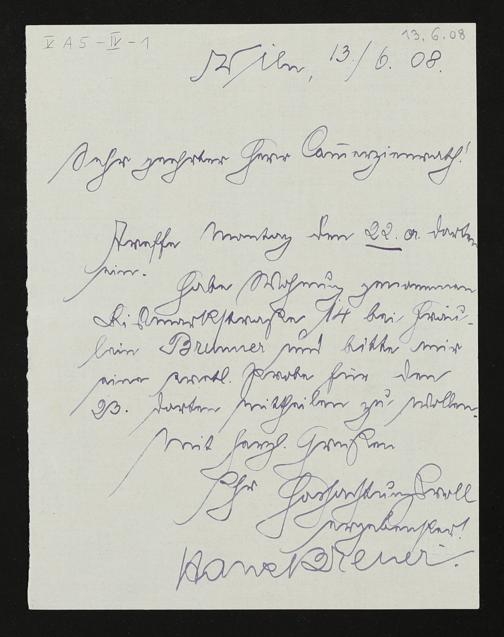 V A 5 - IV - 1
13.6.08
Wien, 13./6. 08.
Sehr geehrter Herr Commerzienrath!
Treffe Montag den 22. a. dorten
ein.
Habe Wohnung genommen
Bismarkstraße 14 bei Fräu-
lein Brunner und bitte mir
eine evetl. Probe für den
23. dorten mittheilen zu wollen.
Mit herzl. Grüßen
Ihr Hochachtungsvoll
ergebenster!
Hans Breuer.